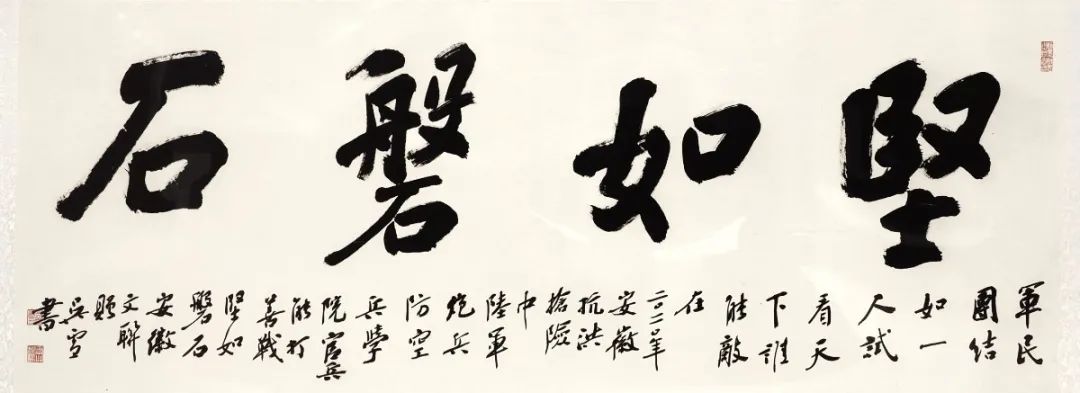 堅如磐石
軍民
團结
如一
人試
看天
下誰
能敵
在
年
安徽
抗洪
搶險
中
陸軍
炮兵
防空
兵學
院官兵
能打
善戰
堅如
磐石
安徽
文聯
题
吴雪
書